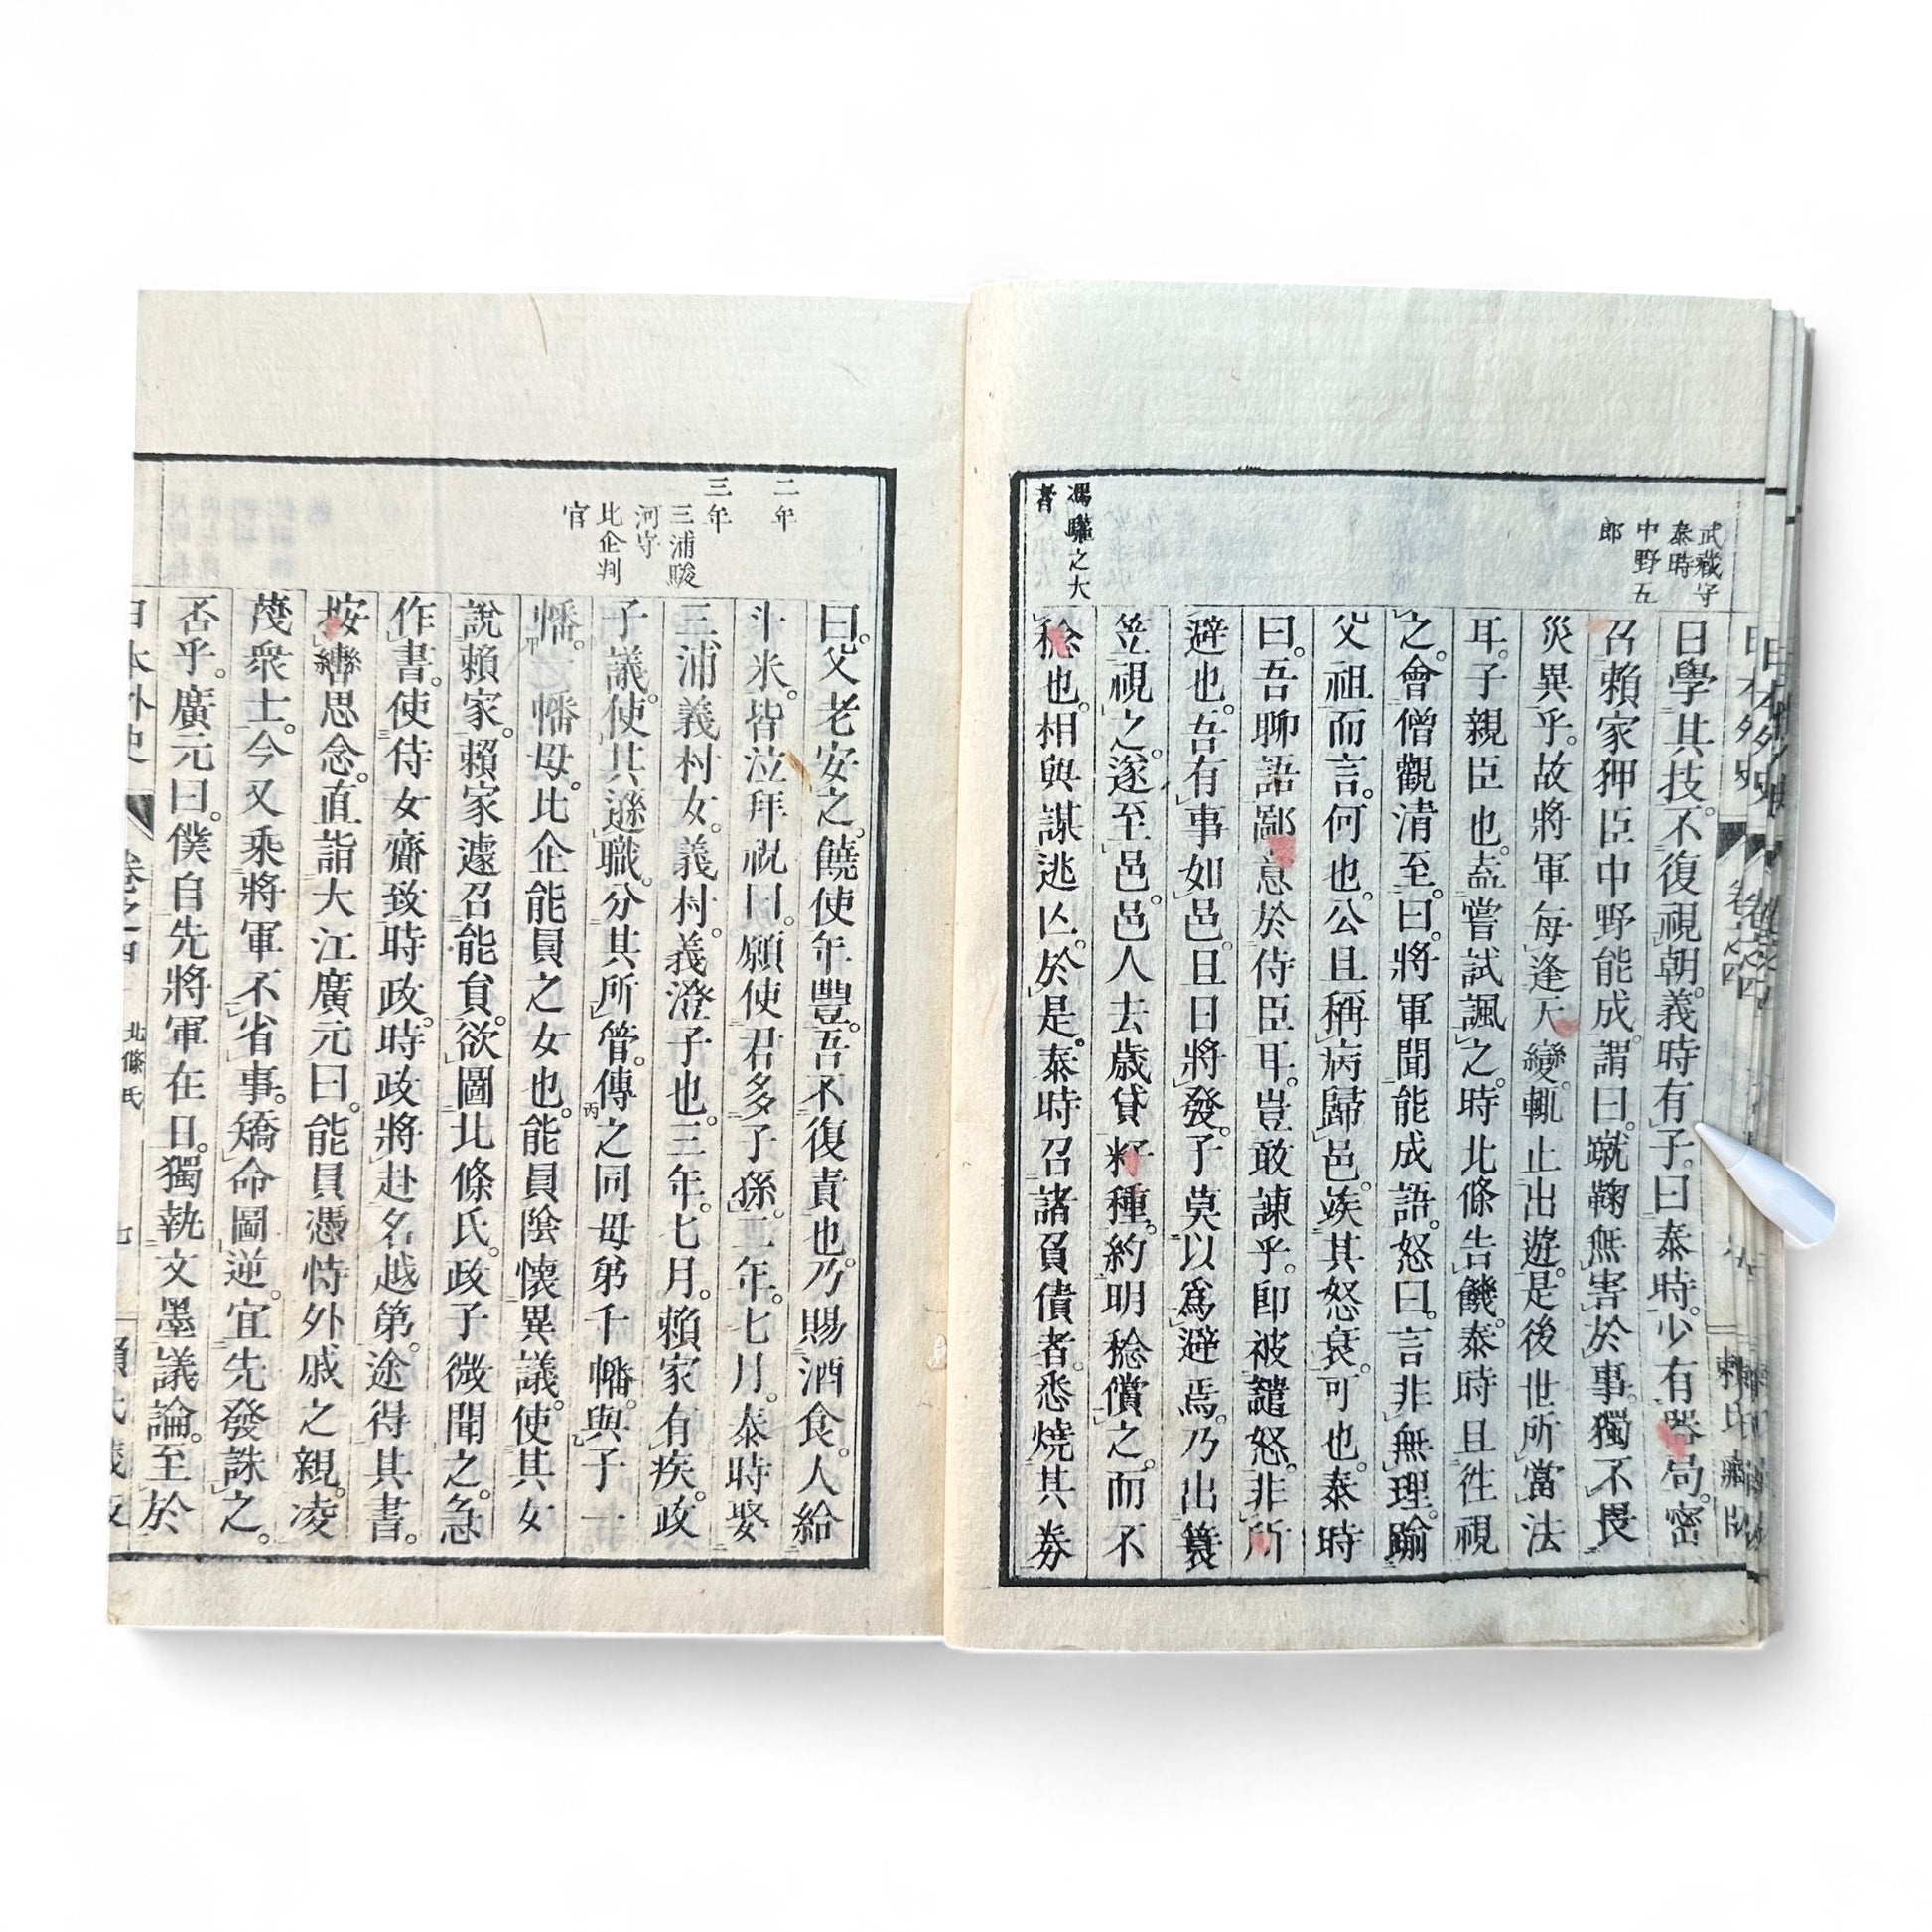 武藏守
泰時
中野五
郎
馮驩之大
者
日學其技。不復視朝。義時有子。曰泰時。少有器局。密
召賴家狎臣中野能成。謂曰。蹴鞠無害於事。獨不畏
災異乎。故將軍每逢天變。輒止出遊。是後世所當法
耳。子親臣也。盍嘗試諷之。時北條告饑。泰時且往視
之。會僧觀清至。曰。將軍聞能成語。怒曰。言非無理。踰
父祖而言。何也。公且稱病歸邑。竢其怒衰。可也。泰時
曰。吾聊語鄙意於侍臣耳。豈敢諫乎。卽被譴怒。非所
避也。吾有事如邑。且日將發。子莫以爲避焉。乃出簑
笠視之。遂至邑。邑人去歲貸籽種。約明稔償之。而不
稔也。相與謀逃亾。於是。泰時召諸負債者。悉燒其劵
二年
三年
三浦駿
河守
比企判
官
曰。父老安之。饒使年豐。吾不復責也。乃賜酒食。人給
斗米。皆泣拜祝曰。願使君多子孫。二年。七月。泰時娶
三浦義村女。義村。義澄子也。三年。七月。賴家有疾。政
子議。使其遜職。分其所管。傳之同母弟千幡。與子一
幡。一幡母。比企能員之女也。能員陰懷異議。使其女
說賴家。賴家遽召能員。欲圖北條氏。政子微聞之。急
作書。使侍女齎致時政。時政將赴名越第。途得其書。
按轡思念。直詣大江廣元曰。能員憑恃外戚之親。凌
蔑衆士。今又乘將軍不省事。矯命圖逆。宜先發誅之。
否乎。廣元曰。僕自先將軍在日。獨執文墨議論。至於
日本外史
卷之四
北條氏
七
賴氏藏版